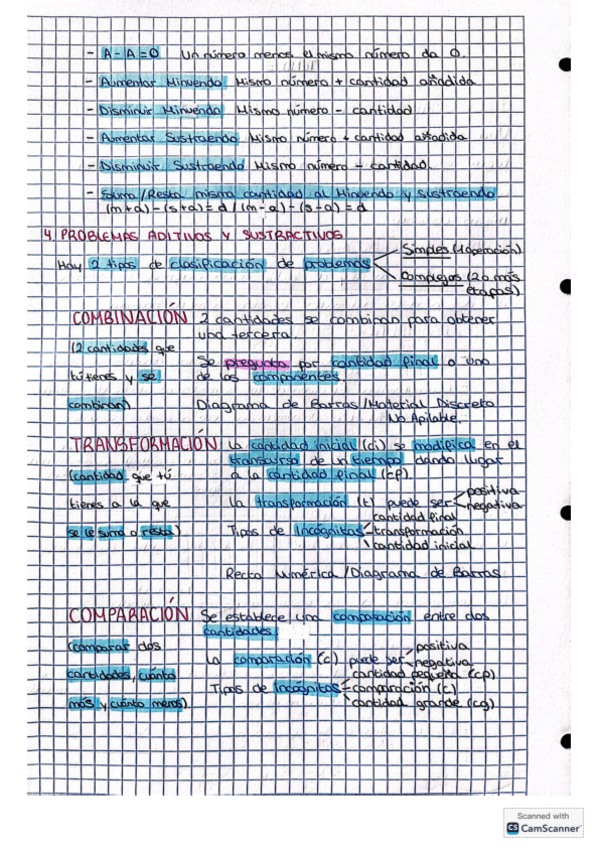 - A - A = 0 Un número menos el mismo número da 0.
- Aumentar Minuendo Mismo número + cantidad añadida
- Disminuir Minuendo Mismo número - cantidad
- Aumentar Sustraendo Mismo número + cantidad añadida
- Disminuir Sustraendo Mismo número - cantidad.
- Suma/Resta misma cantidad al Minuendo y Sustraendo
(m+a)-(s+a)=d / (m-a)-(s-a)=d
4. PROBLEMAS ADITIVOS Y SUSTRACTIVOS
Hay 2 tipos de clasificación de problemas
Simples (1 operación)
Complejos (2 o más
etapas)
COMBINACIÓN 2 cantidades se combinan para obtener
una tercera.
(2 cantidades que
tú tienes y se
combinan)
Se pregunta por cantidad final o uno
de los componentes.
Diagrama de Barras/Material Discreto
No Apilable.
TRANSFORMACIÓN La cantidad inicial (ci) se modifica en el
transcurso de un tiempo dando lugar
a la cantidad final (cf).
(cantidad que tú
tienes a la que
se le suma o resta)
La transformación (t) puede ser
positiva
negativa
Tipos de Incógnitas
cantidad final
transformación
cantidad inicial
Recta Numérica/Diagrama de Barras
COMPARACIÓN Se establece una comparación entre dos
cantidades.
(comparar dos
cantidades, cuánto
más y cuánto menos)
La comparación (c) puede ser
positiva
negativa
Tipos de Incógnitas
cantidad pequeña (cp)
comparación (c)
cantidad grande (cg)
Scanned with
CS CamScanner